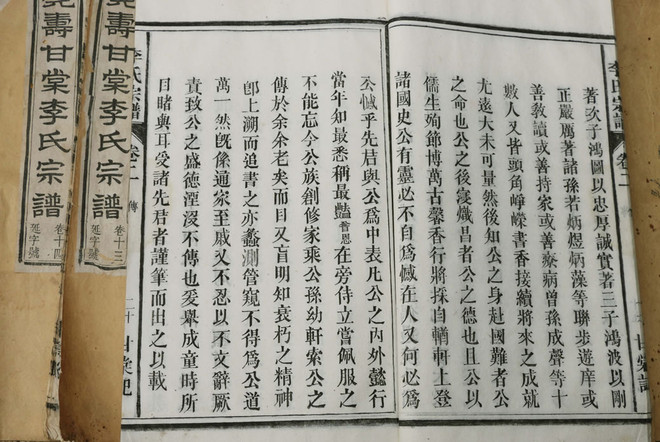 著次子鴻圖以忠厚誠實著三子鴻波以剛
正嚴厲著諸孫若炳煜炳藻等聯步遊庠或
善教讀或善持家或善豪病曾孫成聲等十
數人又皆頭角崢嶸書香接續將來之成就
尤遠大未可量然後知公之身赴國難者公
之命也公之後寖熾昌者公之德也且公以
儒生殉節博萬古馨香行將採自輶軒上登
諸國史公有靈必不自爲憾在人又何必爲
公憾乎先君與公爲中表凡公之內外懿行
當年知最悉稱最豔晋恩在旁侍立嘗佩服之
不能忘今公族創修家乘公孫幼軒索公之
傳於余余老矣而目又盲明知衰朽之精神
卽上溯而追書之亦蠡測管窺不得爲公道
萬一然旣係通家至戚又不忍以不文辭厥
責致公之盛德湮沒不傳也爰舉成童時所
目睹與耳受諸先君者謹筆而出之以載
李氏宗譜 卷二 傳
二十 甘棠記
李氏宗譜
卷二
堯壽甘棠李氏宗譜
卷十三
延字號
壽甘棠李氏宗譜
卷十四
延字號